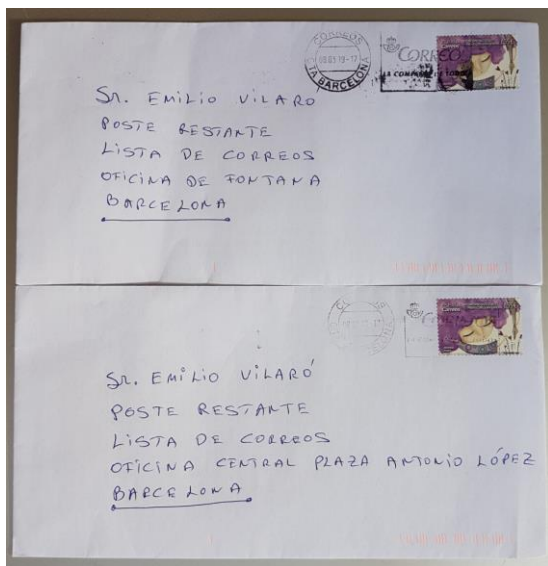 CORREOS
TA BARCELONA
CORREO
LA COMPAÑIA DE TODOS
Correos
Sr. EMILIO VILARO
POSTE RESTANTE
LISTA DE CORREOS
OFICINA DE FONTANA
BARCELONA
Correos
Sr. EMILIO VILARÓ
POSTE RESTANTE
LISTA DE CORREOS
OFICINA CENTRAL PLAZA ANTONIO LÓPEZ
BARCELONA